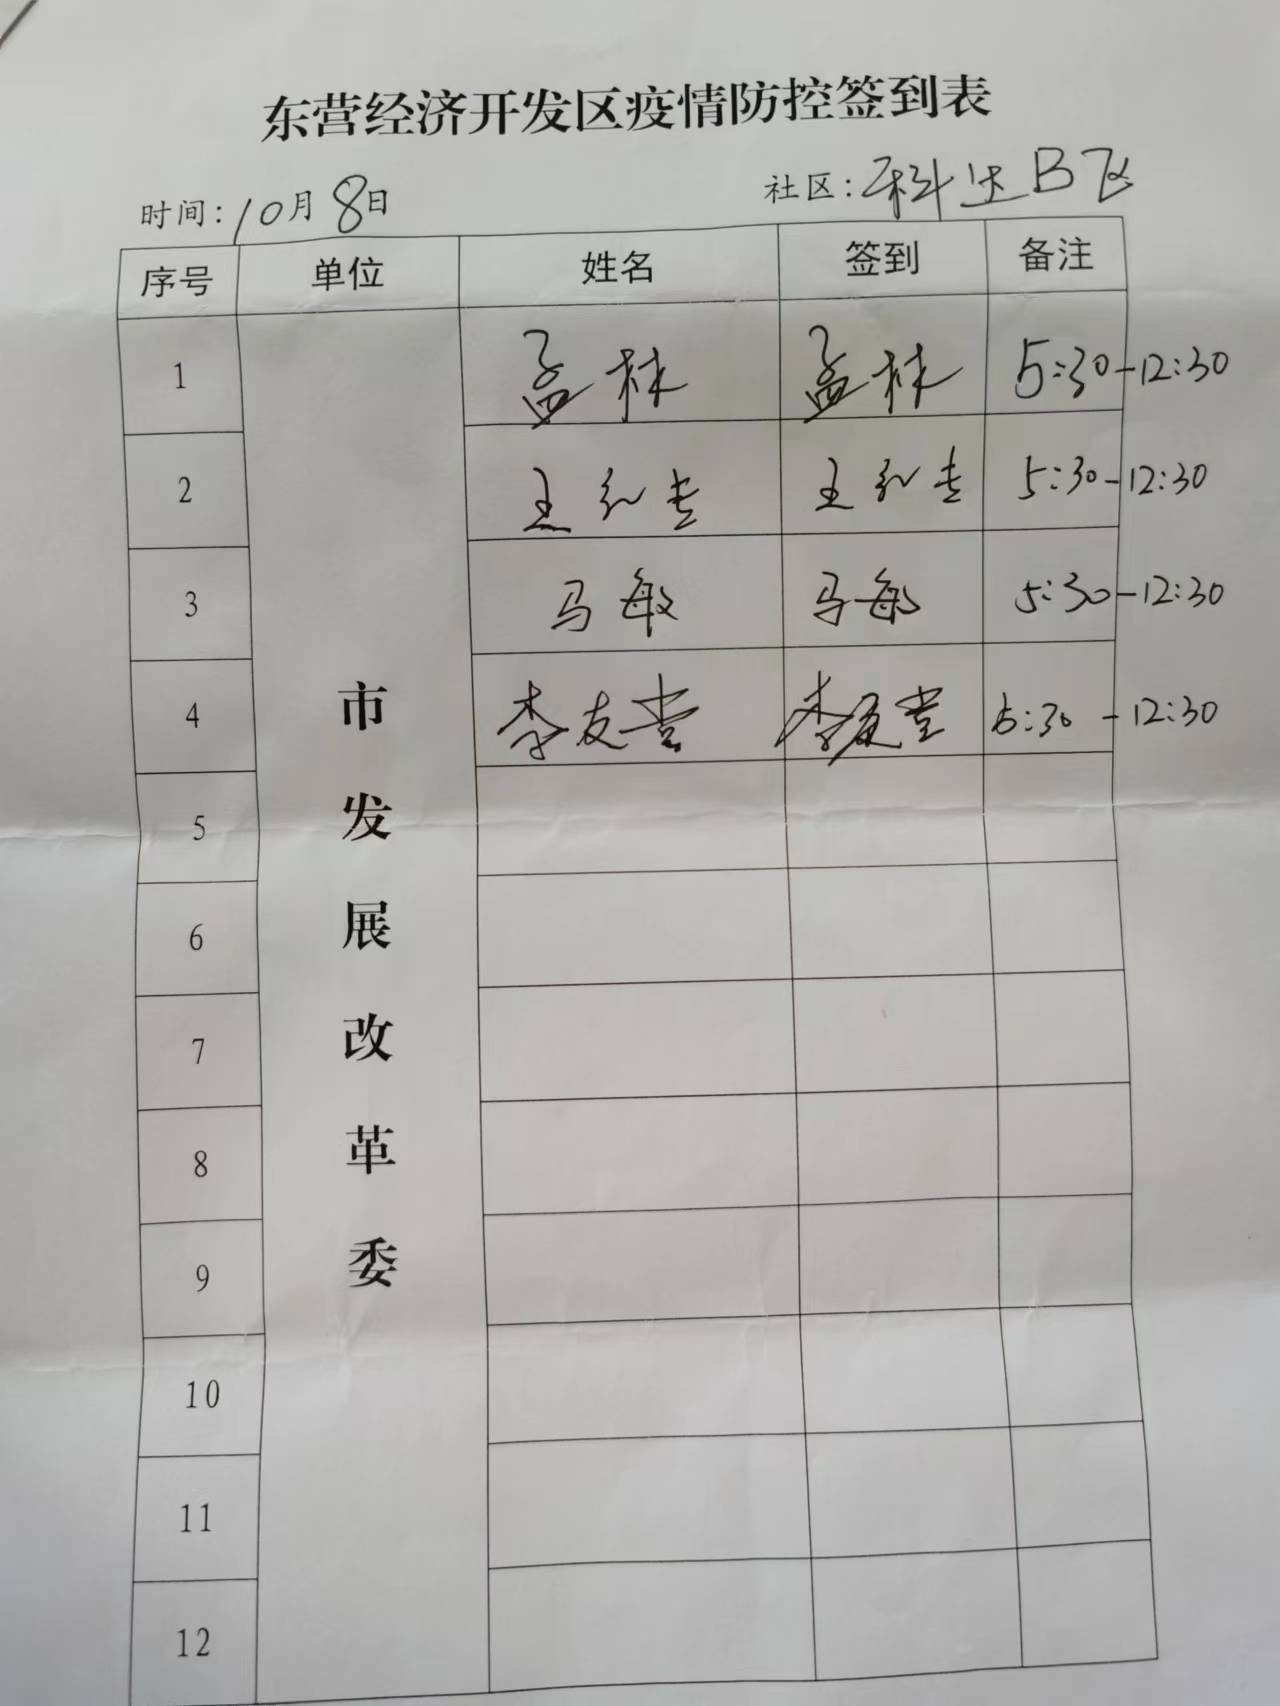 东营经济开发区疫情防控签到表
时间：10月8日
社区：科达B区
序号 单位 姓名 签到 备注
市发展改革委
1 孟林 孟林 5:30-12:30
2 王 王 5:30-12:30
3 马敏 马敏 5:30-12:30
4 李友堂 李友堂 5:30-12:30
5
6
7
8
9
10
11
12